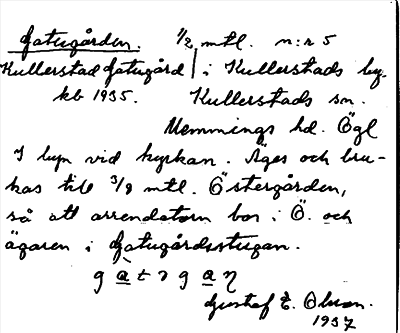 Gatugården. 1/2 mtl. n:r 5
Kullerstad Gatugård | i Kullerstads by.
kb 1935. Kullerstads sn.
Memmings hd. Ögl
I byn vid kyrkan. Äges och bru-
kas till 3/8 mtl. Östergården,
så att arrendatorn bor i Ö. och
ägaren i Gatugårdsstugan.
g à t ɿ g a ŋ
Gustaf E. Olson.
1937